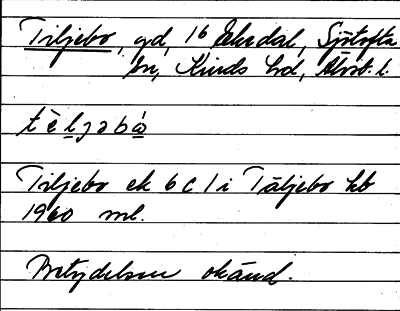 Tiljebo, gd, 16 Ekedal, Sjötofta
sn, Kinds hd, Älvsb. l.
tèljəbò
Tiljebo ek 6 C 1 i Täljebo hb
1960 ml.
Betydelsen okänd.